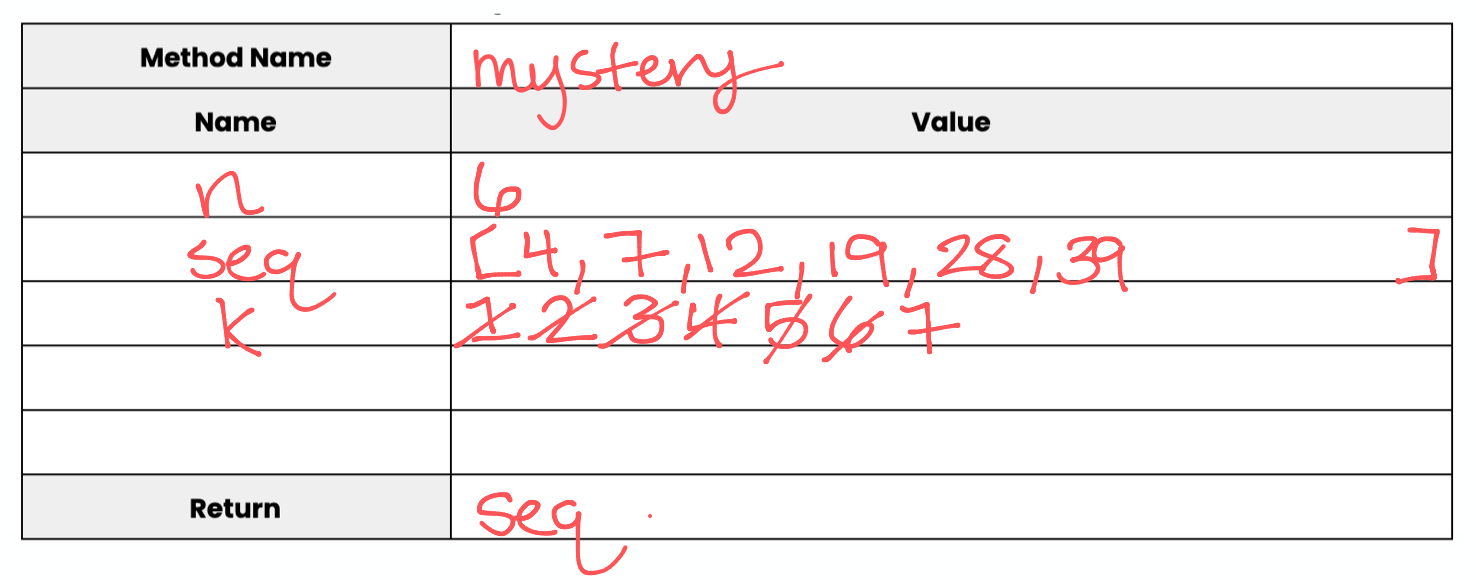 Method Name mystery
Name Value
n 6
seq [4, 7, 12, 19, 28, 39 ]
k 1 2 3 4 5 6 7
Return seq